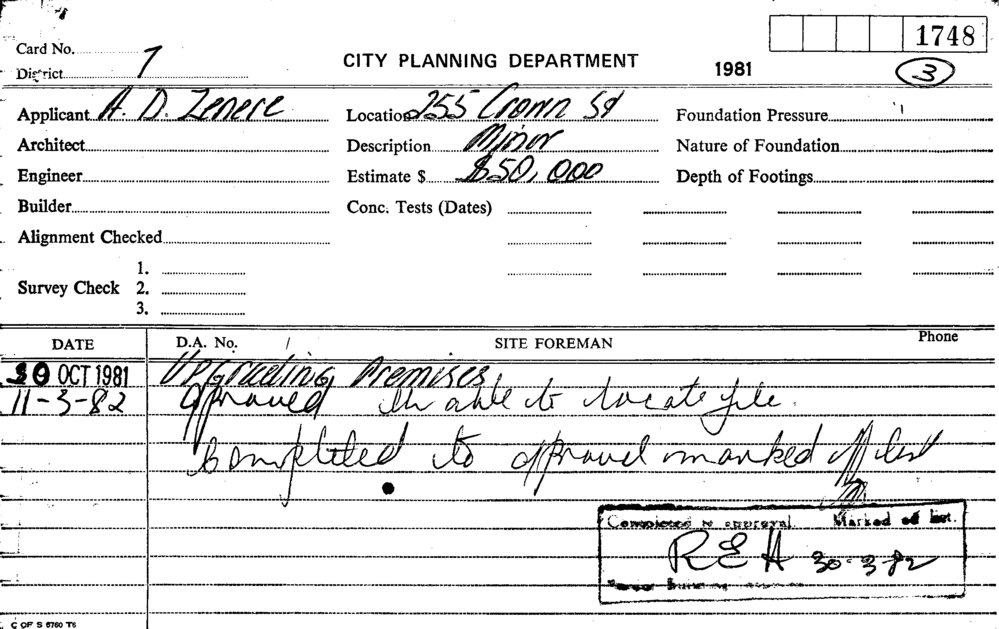 1748
Card No.
District 7
CITY PLANNING DEPARTMENT
1981
3
Applicant A. D. Zenere
Location 255 Crown St
Foundation Pressure
Architect
Description Minor
Nature of Foundation
Engineer
Estimate $ $50,000
Depth of Footings
Builder
Conc. Tests (Dates)
Alignment Checked
Survey Check
1.
2.
3.
DATE
D.A. No.
SITE FOREMAN
Phone
30 OCT 1981 Upgrading Premises
11-3-82 approved Unable to locate file.
Completed to approval marked off list
Completed to approval. Marked off list.
REH 30-3-82
C OF S 5760 T6